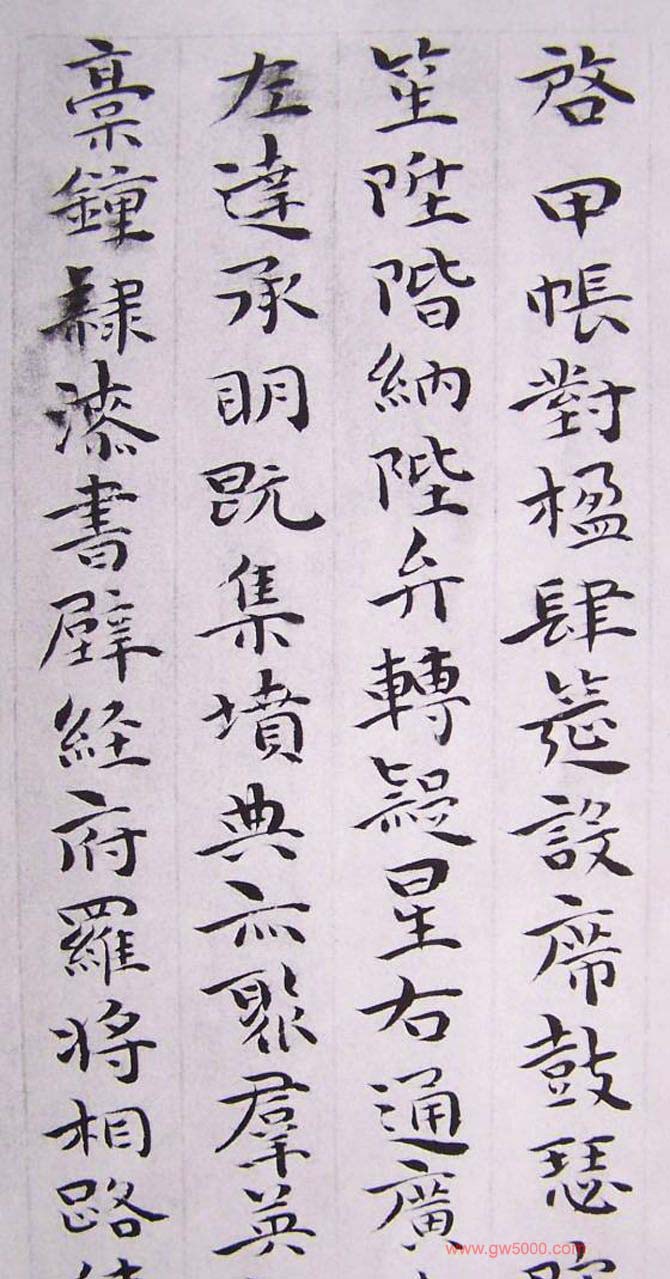 啓甲帳對楹肆筵設席鼓瑟
笙陞階納陛弁轉疑星右通廣
左達承明既集墳典亦聚群英
稾鍾隸漆書壁経府羅将相路
www.gw5000.com